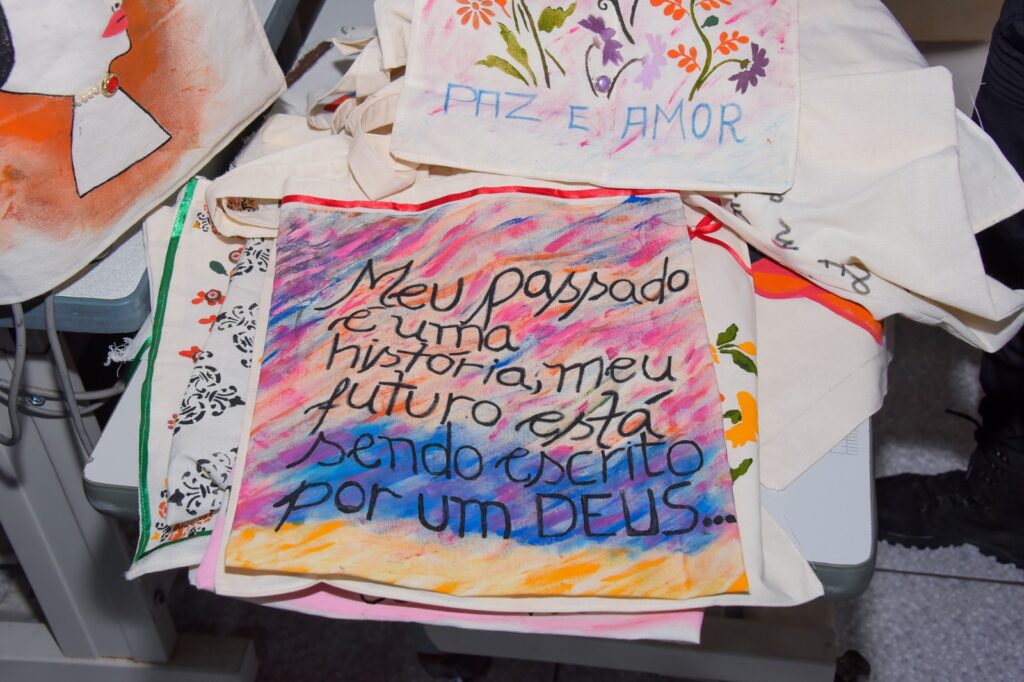 PAZ E AMOR
Meu passado
e uma
história, meu
futuro está
sendo escrito
por um DEUS...